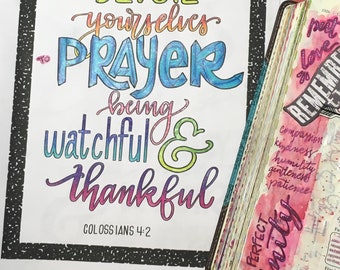 yourselves
TO
PRAYER
being
watchful &
thankful
COLOSSIANS 4:2
love
REMEMBER
compassion
kindness
humility
gentleness
patience
PERFECT
unity